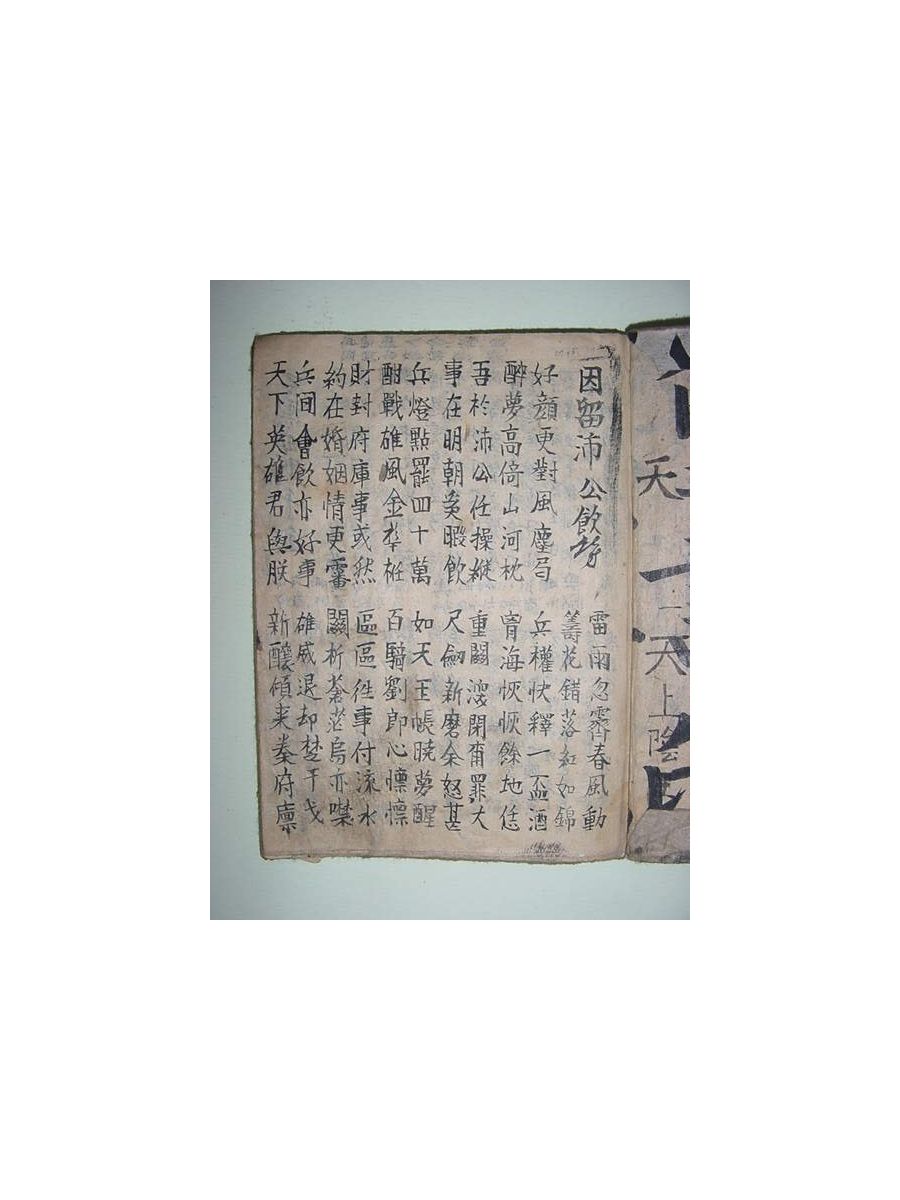 因留沛公飲 雷雨忽霽春風動
籌花錯落紅如錦
好顔更對風塵局 兵權快釋一盃酒
醉夢高倚山河枕 胷海恢恢餘地恁
吾於沛公任操縱 重關深閉罪大
事在明朝奚暇飲 尺劒新磨余怒甚
兵燈點罷四十萬 如天玉帳曉夢醒
酣戰雄風金 百騎劉郎心懍懍
財封府庫事或然 區區徃事付流水
約在婚姻情更審 關柝蒼茫烏亦噤
兵间會飲亦好事 雄威退却楚干戈
天下英雄君與朕 新釀傾来秦府廪
天
一天上陰